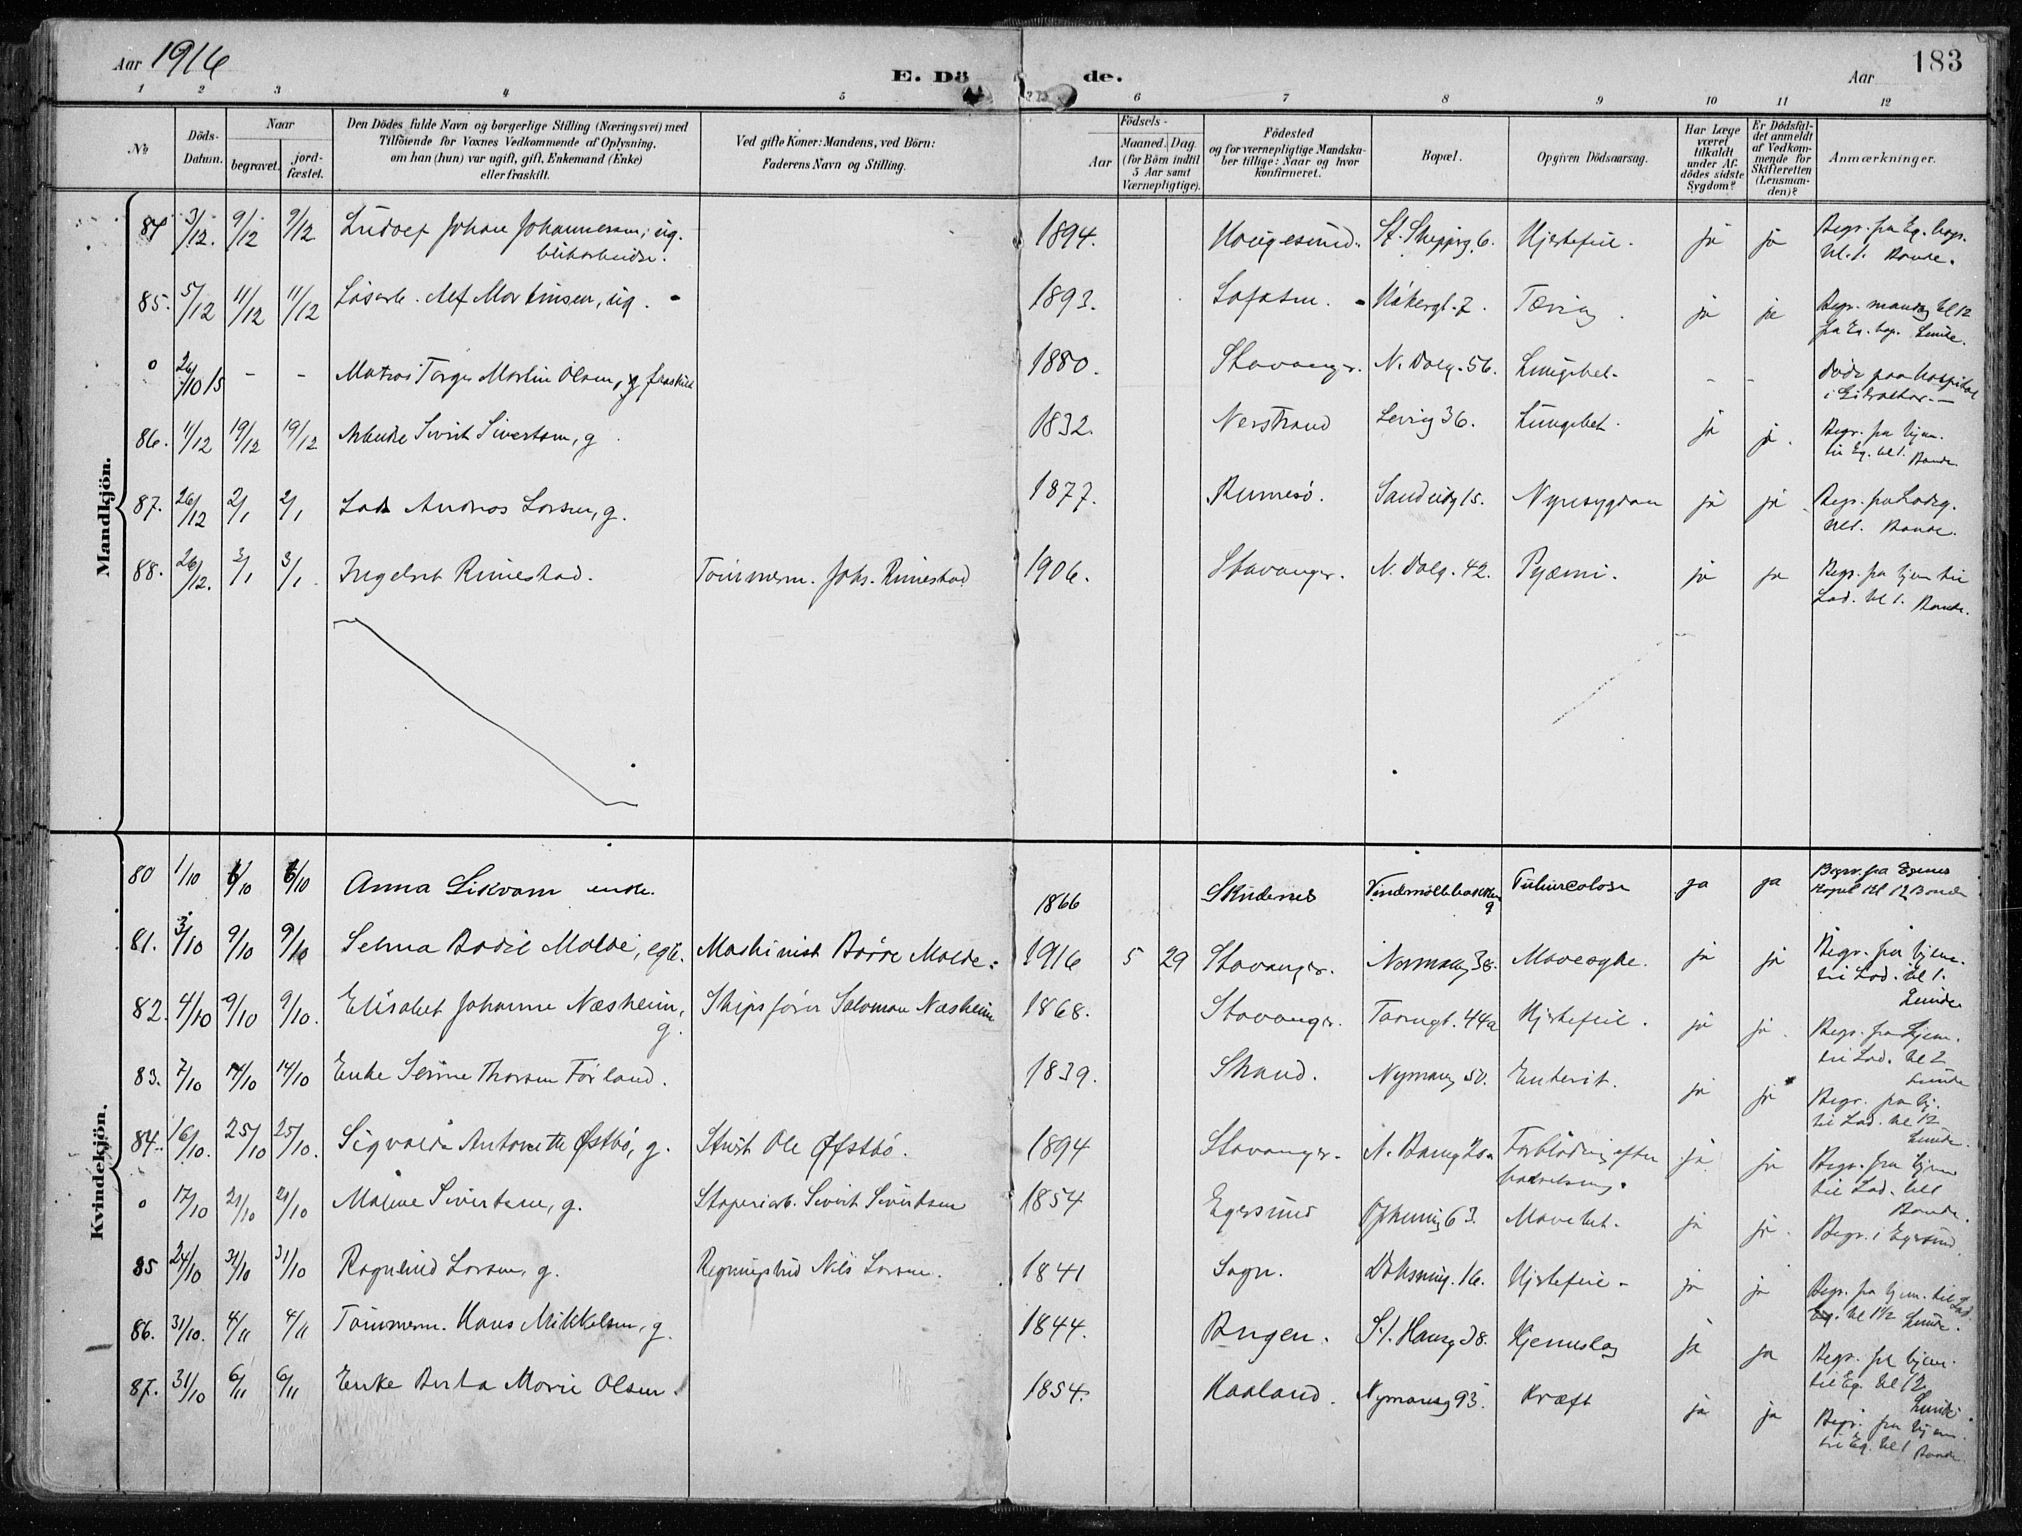 Aar 1916
E. Dö de.
Aar
183
1 2 3 4 5 6 7 8 9 10 11 12
№
Döds-Datum.
Naar
begravet.
jord-fæstet.
Den Dödes fulde Navn og borgerlige Stilling (Næringsvei) med
Tilföiende for Voxnes Vedkommende af Oplysning,
om han (hun) var ugift, gift, Enkemand (Enke)
eller fraskilt.
Ved gifte Koner: Mandens, ved Börn:
Faderens Navn og Stilling.
Födsels-
Aar
Maaned. Dag
(for Börn indtil
5 Aar samt
Værnepligtige).
Födested
og for værnepligtige Mandska-
ber tillige: Naar og hvor
konfirmeret.
Bopæl.
Opgiven Dödsaarsag.
Har Læge
været
tilkaldt
under Af-
dödes sidste
Sygdom?
Er Dödsfal-
det anmeldt
af Vedkom-
mende for
Skifteretten
(Lensman-
den)?
Anmærkninger.
Mandkjön.
84 3/12. 9/12 9/12 Ludolf Johan Johannessen, ug. 1894. Haugesund. St. Skippg. 6. Hjertefeil. ja ja Begr. fra Eg. kap.
kl. 1. Bonde.
85. 5/12 11/12 11/12 Løsarb. Alf Martinsen, ug. 1893. 7. Tæring ja ja Begr. mandag kl 12
fra Eg. kap. Lunde.
o 26/10 15 - - Matros Torger Martin Olsen, g fraskilt 1880. Stavanger. N. Dalg. 56. Lungebet. - - døde paa hospital
i Gibraltar.
86. 11/12 19/12 19/12 Sivert Sivertsen, g 1832. Nerstrand 36. Lungebet. ja ja. Begr. fra hjem.
til Eg. kl 1. Bonde.
87. 26/12 2/1 2/1 Andreas Larsen, g. 1877. 15. Nyresygdom ja ja Begr. fra Ladeg.
kl 1. Bonde.
88. 26/12. 3/1 3/1 Ingebret Rimestad. Tømmerm. Johs. Rimestad 1906. Stavanger. N. Dalg. 42. Pyæmi. ja ja Begr. fra hjem til
Lad. kl 1. Bonde.
Kvindekjön.
80 1/10 6/10 6/10 Anna Likvam enke. 1866 Skudenes 9 Tuberculose ja ja Begr. fra Egenes
Kapel kl 12 Bonde
81. 3/10 9/10 9/10 Selma Bodil Malde, egte. Maskinist Børre Malde. 1916 5 29 Stavanger. Normang 38. Mavesyke. ja ja Begr. fra hjem.
til Lad. kl 1.
Lunde
82. 4/10 9/10 9/10. Elisabet Johanne Næsheim, g. Skipsfører Salomon Næsheim 1868. Stavanger. Taarngt. 44a Hjertefeil. ja ja. Begr. fra hjem.
til Lad. kl 2
Lunde
83. 7/10 14/10 14/10 Enke Serine Thorsen Førland. 1839. Strand. Nymang 50. Enterit. ja ja Begr. fra hj.
til Lad. kl 12
Lunde.
84. 16/10. 25/10 25/10. Sigvalda Antonette Østbø, g. Stuert Ole Østbø. 1894 Stavanger. N. Bang 20a Forblødning efter
ja ja Begr. fra hjem
til Lad. kl 1
Bonde.
o 17/10 21/10 21/10 Maline Sivertsen, g. Sivert Sivertsen 1854 Egersund 63. Mavebet. ja ja. Begr. i Egersund.
85 24/10 31/10 31/10 Ragnhild Larsen, g. Nils Larsen. 1841 Sogn. 16. Hjertefeil. ja ja Begr. fra hjem. til Lad
kl 1½ Lunde.
86. 31/10. 4/11 4/11 Tømmerm. Hans Mikkelsen, g. 1844. Bergen. St. Hansg 38. Hjerneslag ja ja Begr. fra hjem.
til Eg. kl 12
Lunde.
87. 31/10 6/11 6/11 Enke Berta Marie Olsen. 1854. Haaland. Nymansg 93. Kræft ja ja Begr. fra hjem.
til Eg. kl 1 Bonde